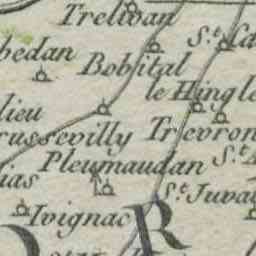 Trelivan
bedan
Bobital
le Hingle
lieu
Trevron
Pleumaudan
St. Juva
ias
Ivignac
R